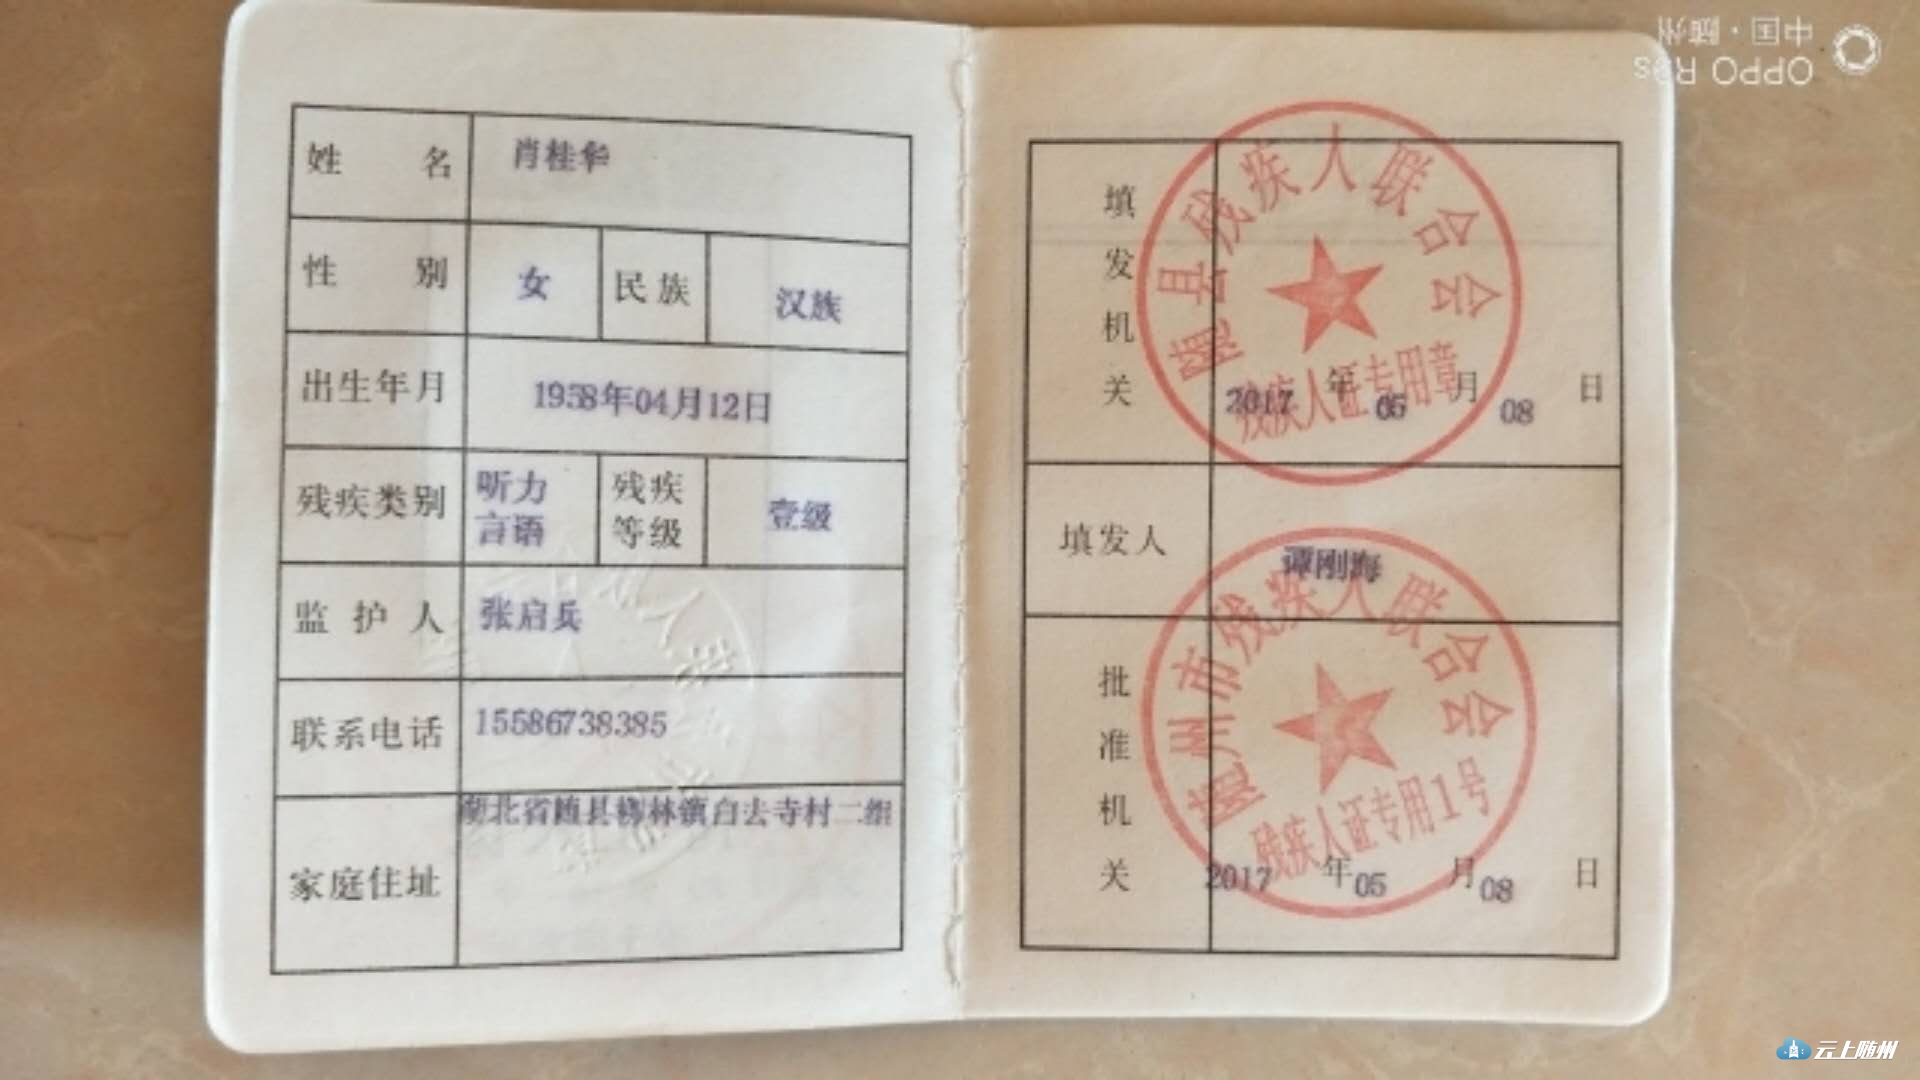 姓名 肖桂华
性别 女 民族 汉族
出生年月 1958年04月12日
残疾类别 听力 言语 残疾等级 壹级
监护人 张启兵
联系电话 15586738385
家庭住址 湖北省随县柳林镇白去寺村二组
填发机关
随县残疾人联合会
残疾人证专用章
2017年05月08日
填发人 谭刚海
批准机关
随州市残疾人联合会
残疾人证专用1号
2017年05月08日
OPPO R9s
中国·随州
云上随州